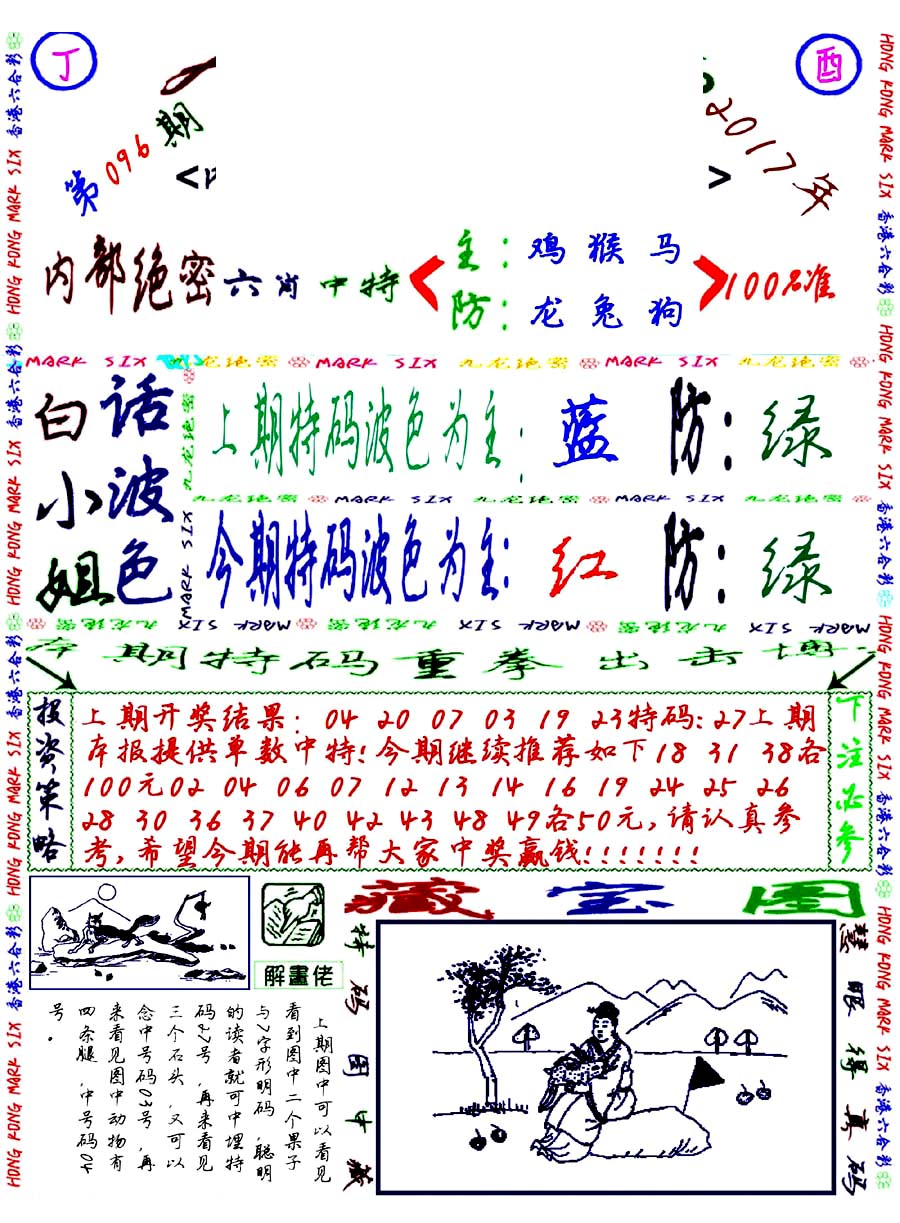 丁
酉
第096期
2017年
内部绝密六肖中特
主：鸡猴马
防：龙兔狗
100%准
白话
小波
姐色
上期特码波色为主：蓝 防：绿
今期特码波色为主：红 防：绿
本期特码重拳出击博
投资策略
上期开奖结果：04 20 07 03 19 23特码：27上期
本报提供单数中特！今期继续推荐如下18 31 38各
100元02 04 06 07 12 13 14 16 19 24 25 26
28 30 36 37 40 42 43 48 49各50元，请认真参
考，希望今期能再帮大家中奖赢钱！！！！！！！
下注必参
藏宝图
解畫佬
上期图中可以看见
看到图中二个果子
与7字形明码，聪明
的读者就可中埋特
码27号，再来看见
三个石头，又可以
念中号码03号，再
来看见图中动物有
四条腿，中号码04
号。
特码图中藏
慧眼得真码
HONG KONG MARK SIX 香港六合彩
MARK SIX 九龙绝密